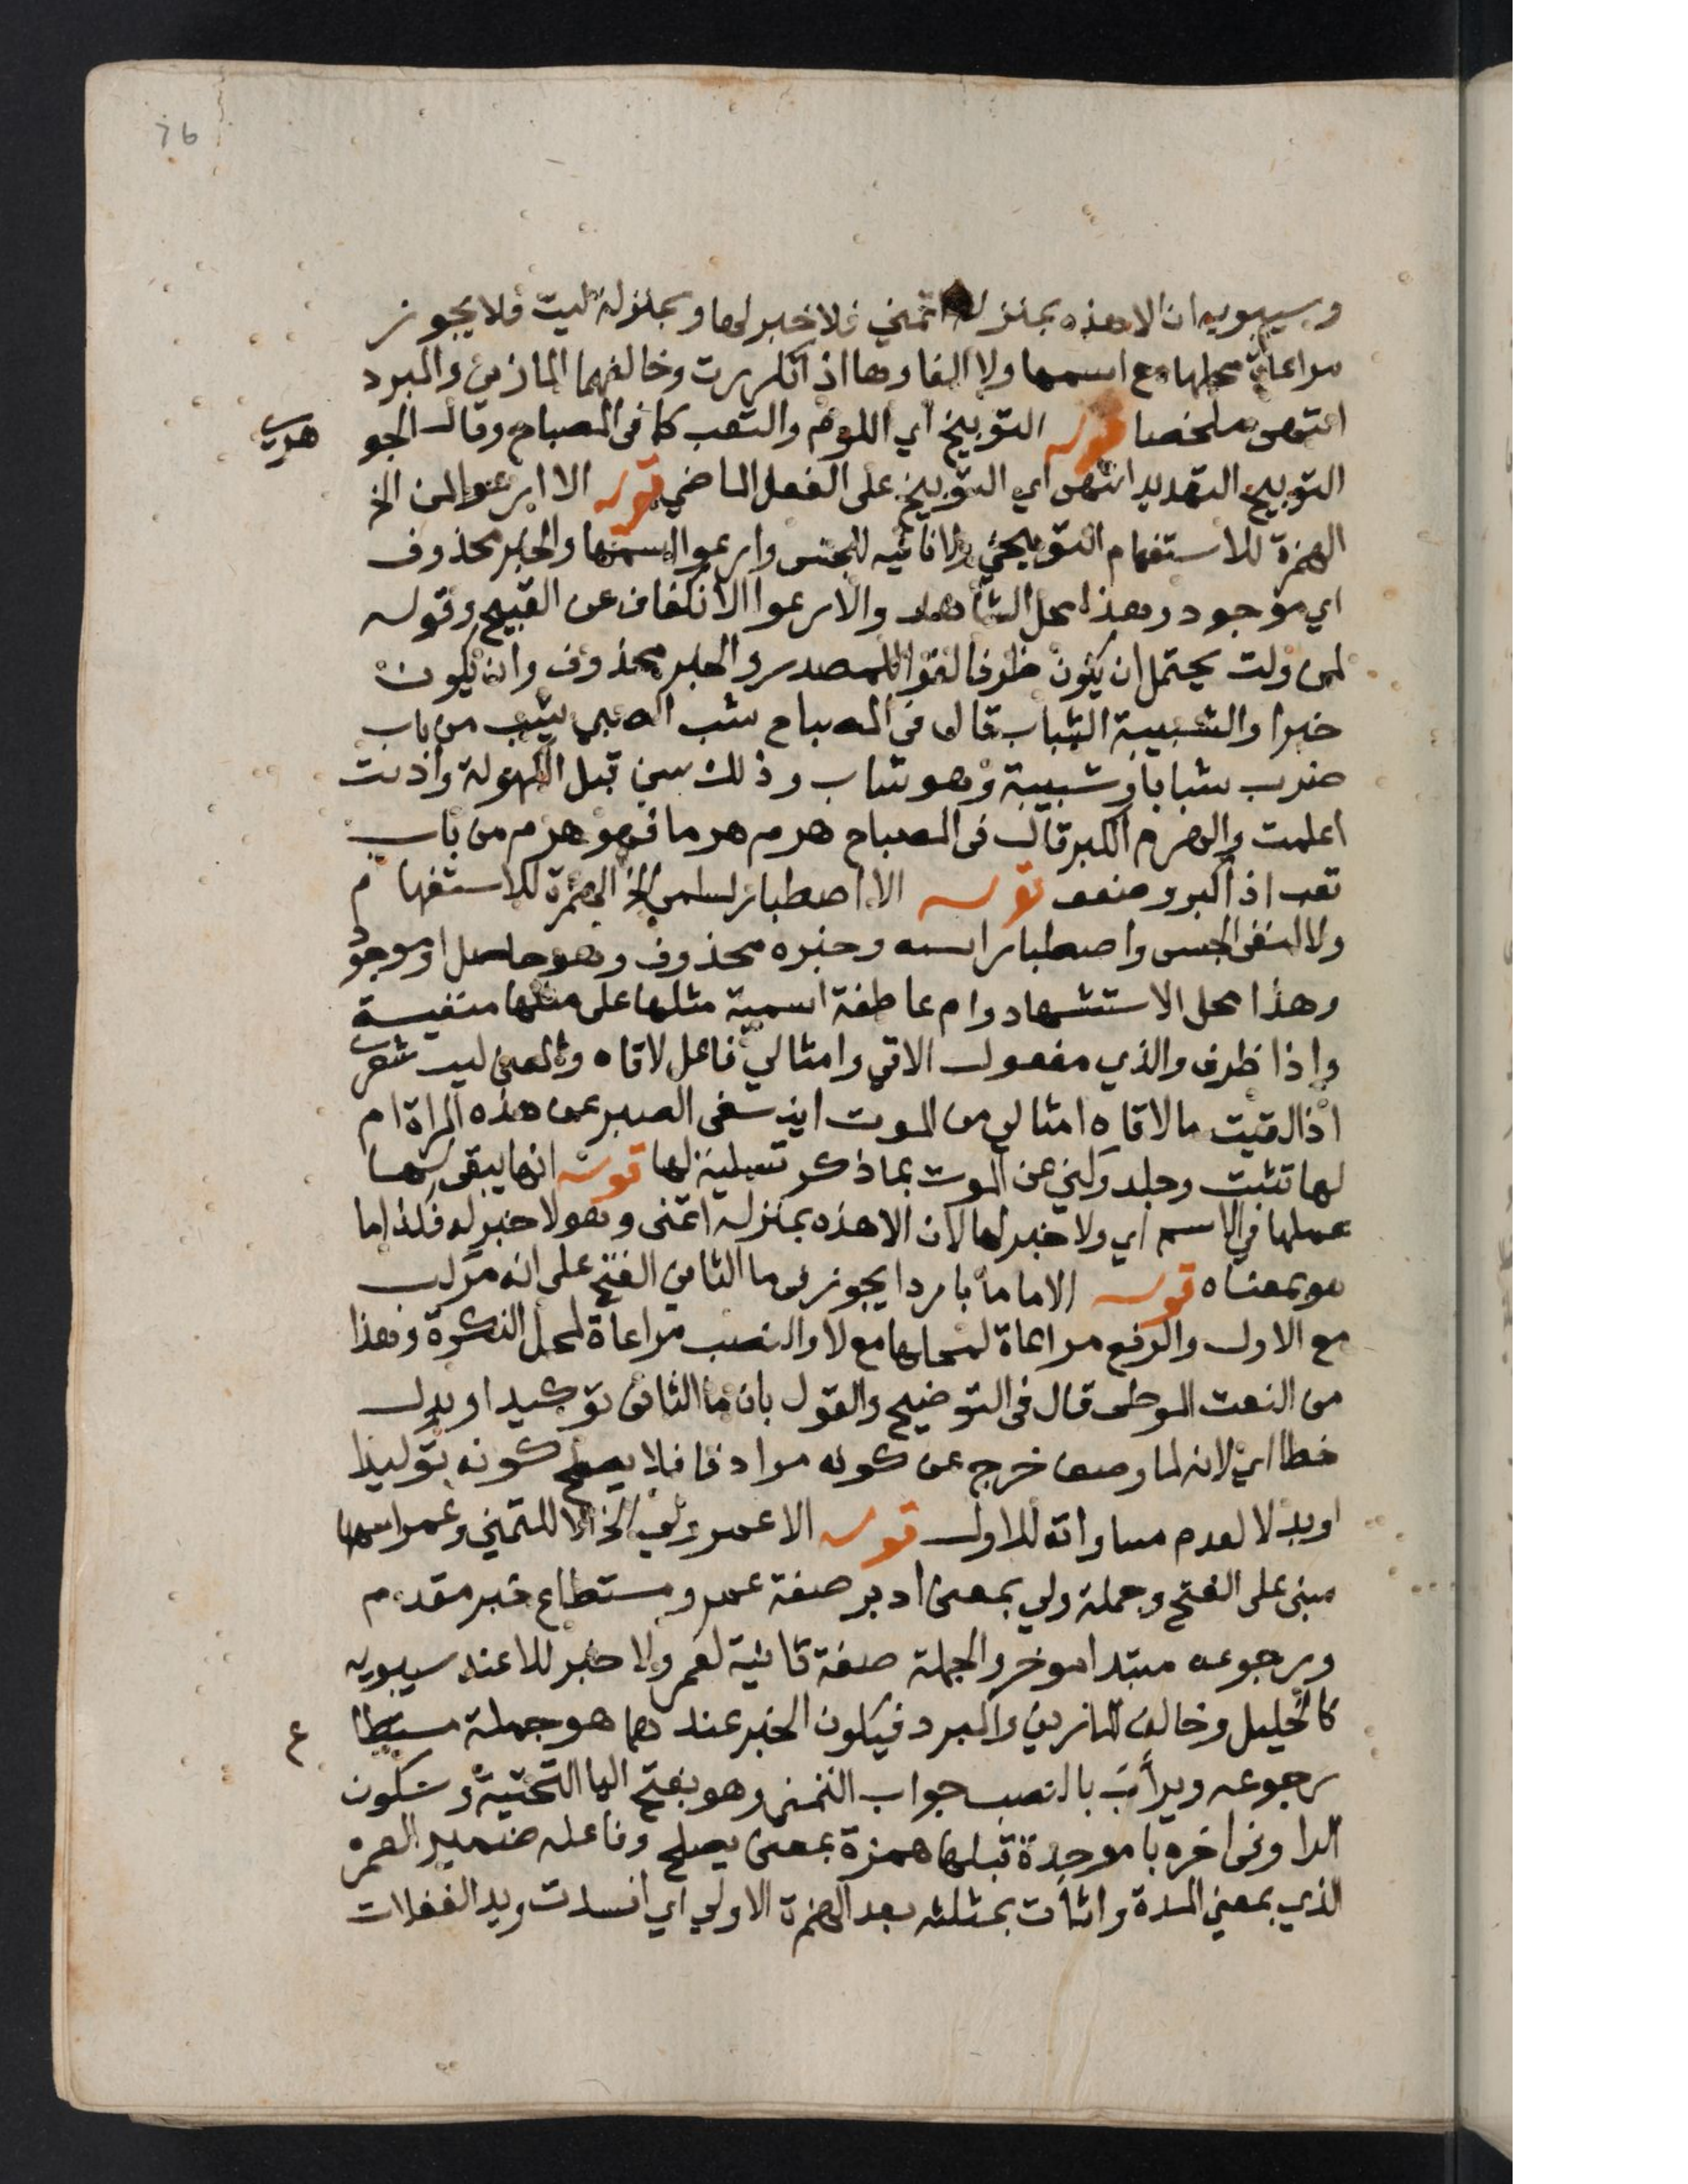 76
وسيبويه ان الا هذه بمنزلة اتمنى فلا خبر لها وبمنزلة ليت فلا يجوز
مراعاة محلها مع اسمها ولا الغاوها اذا تكررت وخالفهما المازني والمبرد
انتهى ملخصا قوله التوبيخ اي اللوم والتعب كما في المصباح وقال الجو هري
التوبيخ التهديد انتهى اي التوبيخ على الفعل الماضي قوله الا ارعوا لمن الخ
الهمزة للاستفهام التوبيخي ولا نافيه للجنس وارعوا اسمها والخبر محذوف
اي موجود وهذا محل الشاهد والارعوا الانكفاف عن القبيح وقوله
لمن ولت يحتمل ان يكون ظرفا لغوا للمصدر والخبر محذوف وان يكون
خبرا والشبيبة الشباب قال في المصباح شب الصبي يشب من باب
ضرب شبابا وشبيبة وهو شاب وذلك سن قبل الكهولة واذنت
اعلمت والهرم الكبر قال في المصباح هرم هرما فهو هرم من باب
تعب اذا كبر وضعف قوله الا اصطبار لسلمى الخ الهمزة للاستفهام
ولا لنفى الجنس واصطبار اسمه وخبره محذوف وهو حاصل او موجود
وهذا محل الاستشهاد وام عاطفة اسمية مثلها على مثلها منفيسة
واذا ظرف والذي مفعول الاقي وامثالي فاعل لاقاه والمعنى ليت شعري
اذا لقيت ما لاقاه امثالي من الموت اينتفى الصبر عن هذه المراة ام
لها تثبت وجلد وكني عن الموت بما ذكر تسلية لها قوله انها يبقى لها
عملها في الاسم اي ولا خبر لها لان الا هذه بمنزلة اتمنى وهو لا خبر له فكذا ما
هو بمعناه قوله الا ما ما باردا يجوز في ما الثاني الفتح على انه مركب
مع الاول والرفع مراعاة لمحلها مع لا والنصب مراعاة لمحل النكرة وهذا
من النعت الموطى قال في التوضيح والقول بان ما الثاني توكيد او بدل
خطا اي لانه لما وصف خرج عن كونه مرادفا فلا يصلح كونه توكيدا
او بدلا لعدم مساواته للاول قوله الا عمر ولى الخ الا للتمني وعمر اسمها
مبني على الفتح وجملة ولي بمعنى ادبر صفة عمر ومستطاع خبر مقدم
ورجوعه مبتدا موخر والجملة صفة ثانية لعمر ولا خبر للا عند سيبويه
كالخليل وخالف المازني والمبرد فيكون الخبر عندهما هو جملة مستطاع
رجوعه ويرأب بالنصب جواب التمني وهو بفتح اليا التحتية وسكون
الرا وفي اخره با موحدة قبلها همزة بمعنى يصلح وفاعله ضمير العمر
الذي بمعنى المدة واثأت بمثلثه بعد الهمزة الاولى اي افسدت ويد الغفلات